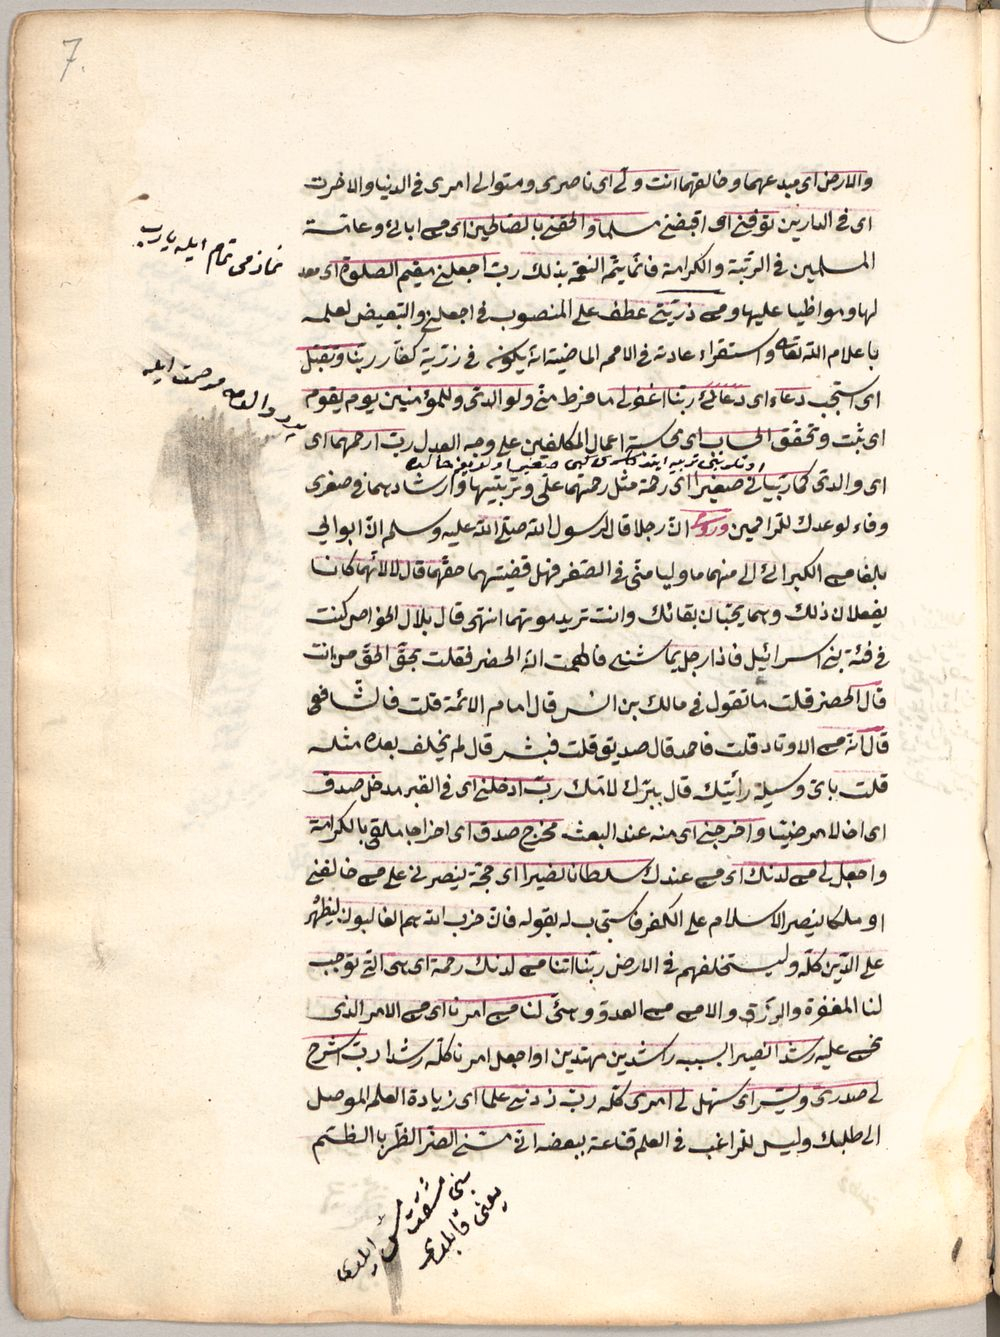 7.
والارض اى مبدعهما وخالقهما انت ولى اى ناصرى ومتوالى امرى فى الدنيا والاخرت
اى فى الدارين توفنى اى اقبضنى مسلما والحقنى بالصالحين اى من ابائى وعامة
المسلمين فى الرتبة والكرامة فانما يتم النعمة بذلك رب اجعلنى مقيم الصلوة اى معد
لها ومواظبا عليها ومن ذريتى عطف على المنصوب فى اجعلنى والتبعيض لعلمه
با علام الله تعالى واستقراء عادته فى الامم الماضية انه يكون فى ذرية كفار ربنا وتقبل
اى استجب دعاء اى دعائى ربنا اغفرلى ما فرط منى ولوالدى وللمؤمنين يوم يقوم
اى يثبت وتحقق الحساب اى محاسبة اعمال المكلفين على وجه العدل رب ارحمهما اى
اى والدى كما ربيانى صغيرا اى رحمة مثل رحمتهما على وتربيتها وارشادهما فى صغرى
وفاء لوعدك للراحمين وروى ان رجلا قال لرسول الله صلى الله عليه وسلم ان ابوالى
بلغا من الكبر الى الى منهما ما وليا منى فى الصغر فهل قضيتهما حقهما قال لا لانهما كانا
يفعلان ذلك وهما يحبان بقائك وانت تريد موتهما انتهى قال بلال الخواص كنت
فى فئة بنى اسرائيل فاذا رجل يماشنى فالهمت انه الخضر فقلت بحق الحق من انت
قال الخضر قلت ما تقول فى مالك بن انس قال امام الائمة قلت فالشافعى
قال انه من الاوتاد قلت فاحمد قال صديق قلت فبشر قال لم يخلف بعده مثله
قلت باى وسيلة رأيتك قال ببرك لامك رب ادخلنى اى فى القبر مدخل صدق
اى ادخالا مرضيا واخرجنى اى منه عند البعث مخرج صدق اى اخراجا ملقى بالكرامة
واجعل لى من لدنك اى من عندك سلطانا نصيرا اى حجة ينصرنى على من خالفنى
او ملكا ينصر الاسلام على الكفر فاستجاب له بقوله فان حزب الله هم الغالبون ليظهره
على الدين كله وليستخلفهم فى الارض ربنا اتنا من لدنك رحمة اى هى التى توجب
لنا المغفرة والرزق والامن من العدو وهيئ لنا من امرنا اى من الامر الذى
نحن عليه رشدا نصير بسبب راشدين مهتدين او اجعل امرنا كله رشدا رب اشرح
لى صدرى ويسر اى سهل لى امرى كله رب زدنى علما اى زيادة العلم الموصل
الى طلبك وليس للراغب فى العلم قناعة ببعضه انى مسنى الضر الظر با الظتم
نمازمى تمام ايله يا رب
مرحمت ايله
بنى مشقت
يعنى قاپلدى